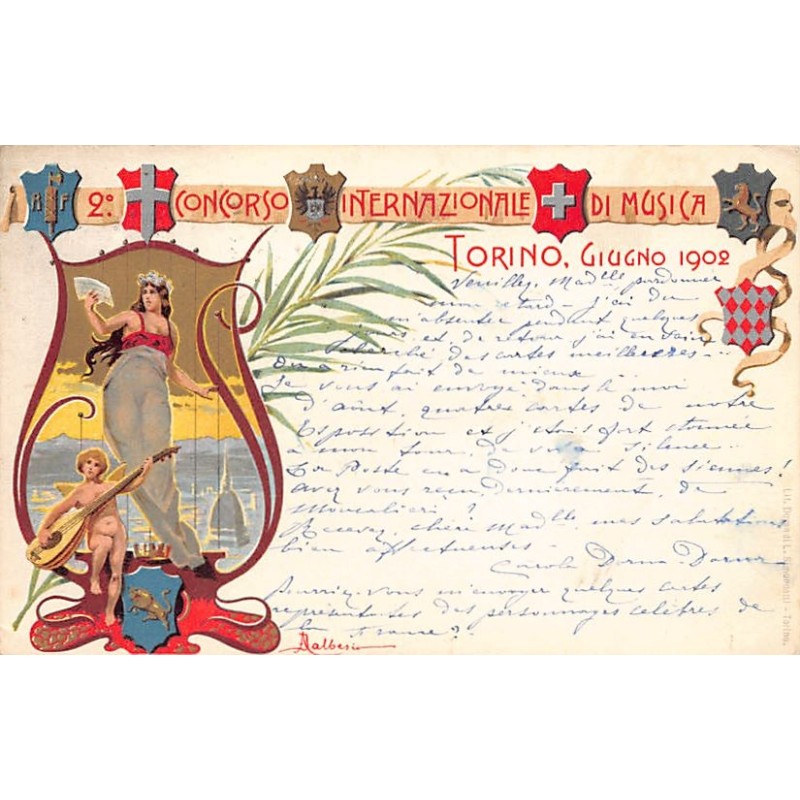 R F
2º CONCORSO INTERNAZIONALE DI MUSICA
TORINO, GIUGNO 1902
Veuillez, Madlle pardonner
mon retard - j'ai du
m'absenter pendant quelques
jours et de retour j'ai en vain
cherché des cartes meilleures..
On a rien fait de mieux
Je vous ai envoyé dans le moi
d'aôut, quatres cartes de notre
Exposition et j'etais fort etonnée
à mon tour, de votre silence..
La Poste en a donc fait des siennes!
avez vous reçu dernierement, de
Moncalieri?
Recevez, chère Madlle mes salutations
bien affectueuses -
Carola Dorna-
Pourriez-vous m'envoyer quelques cartes
représentantes des personnages celèbres de
la France?
Dalbesio
Lit. Doyen di L. Simondetti - Torino.